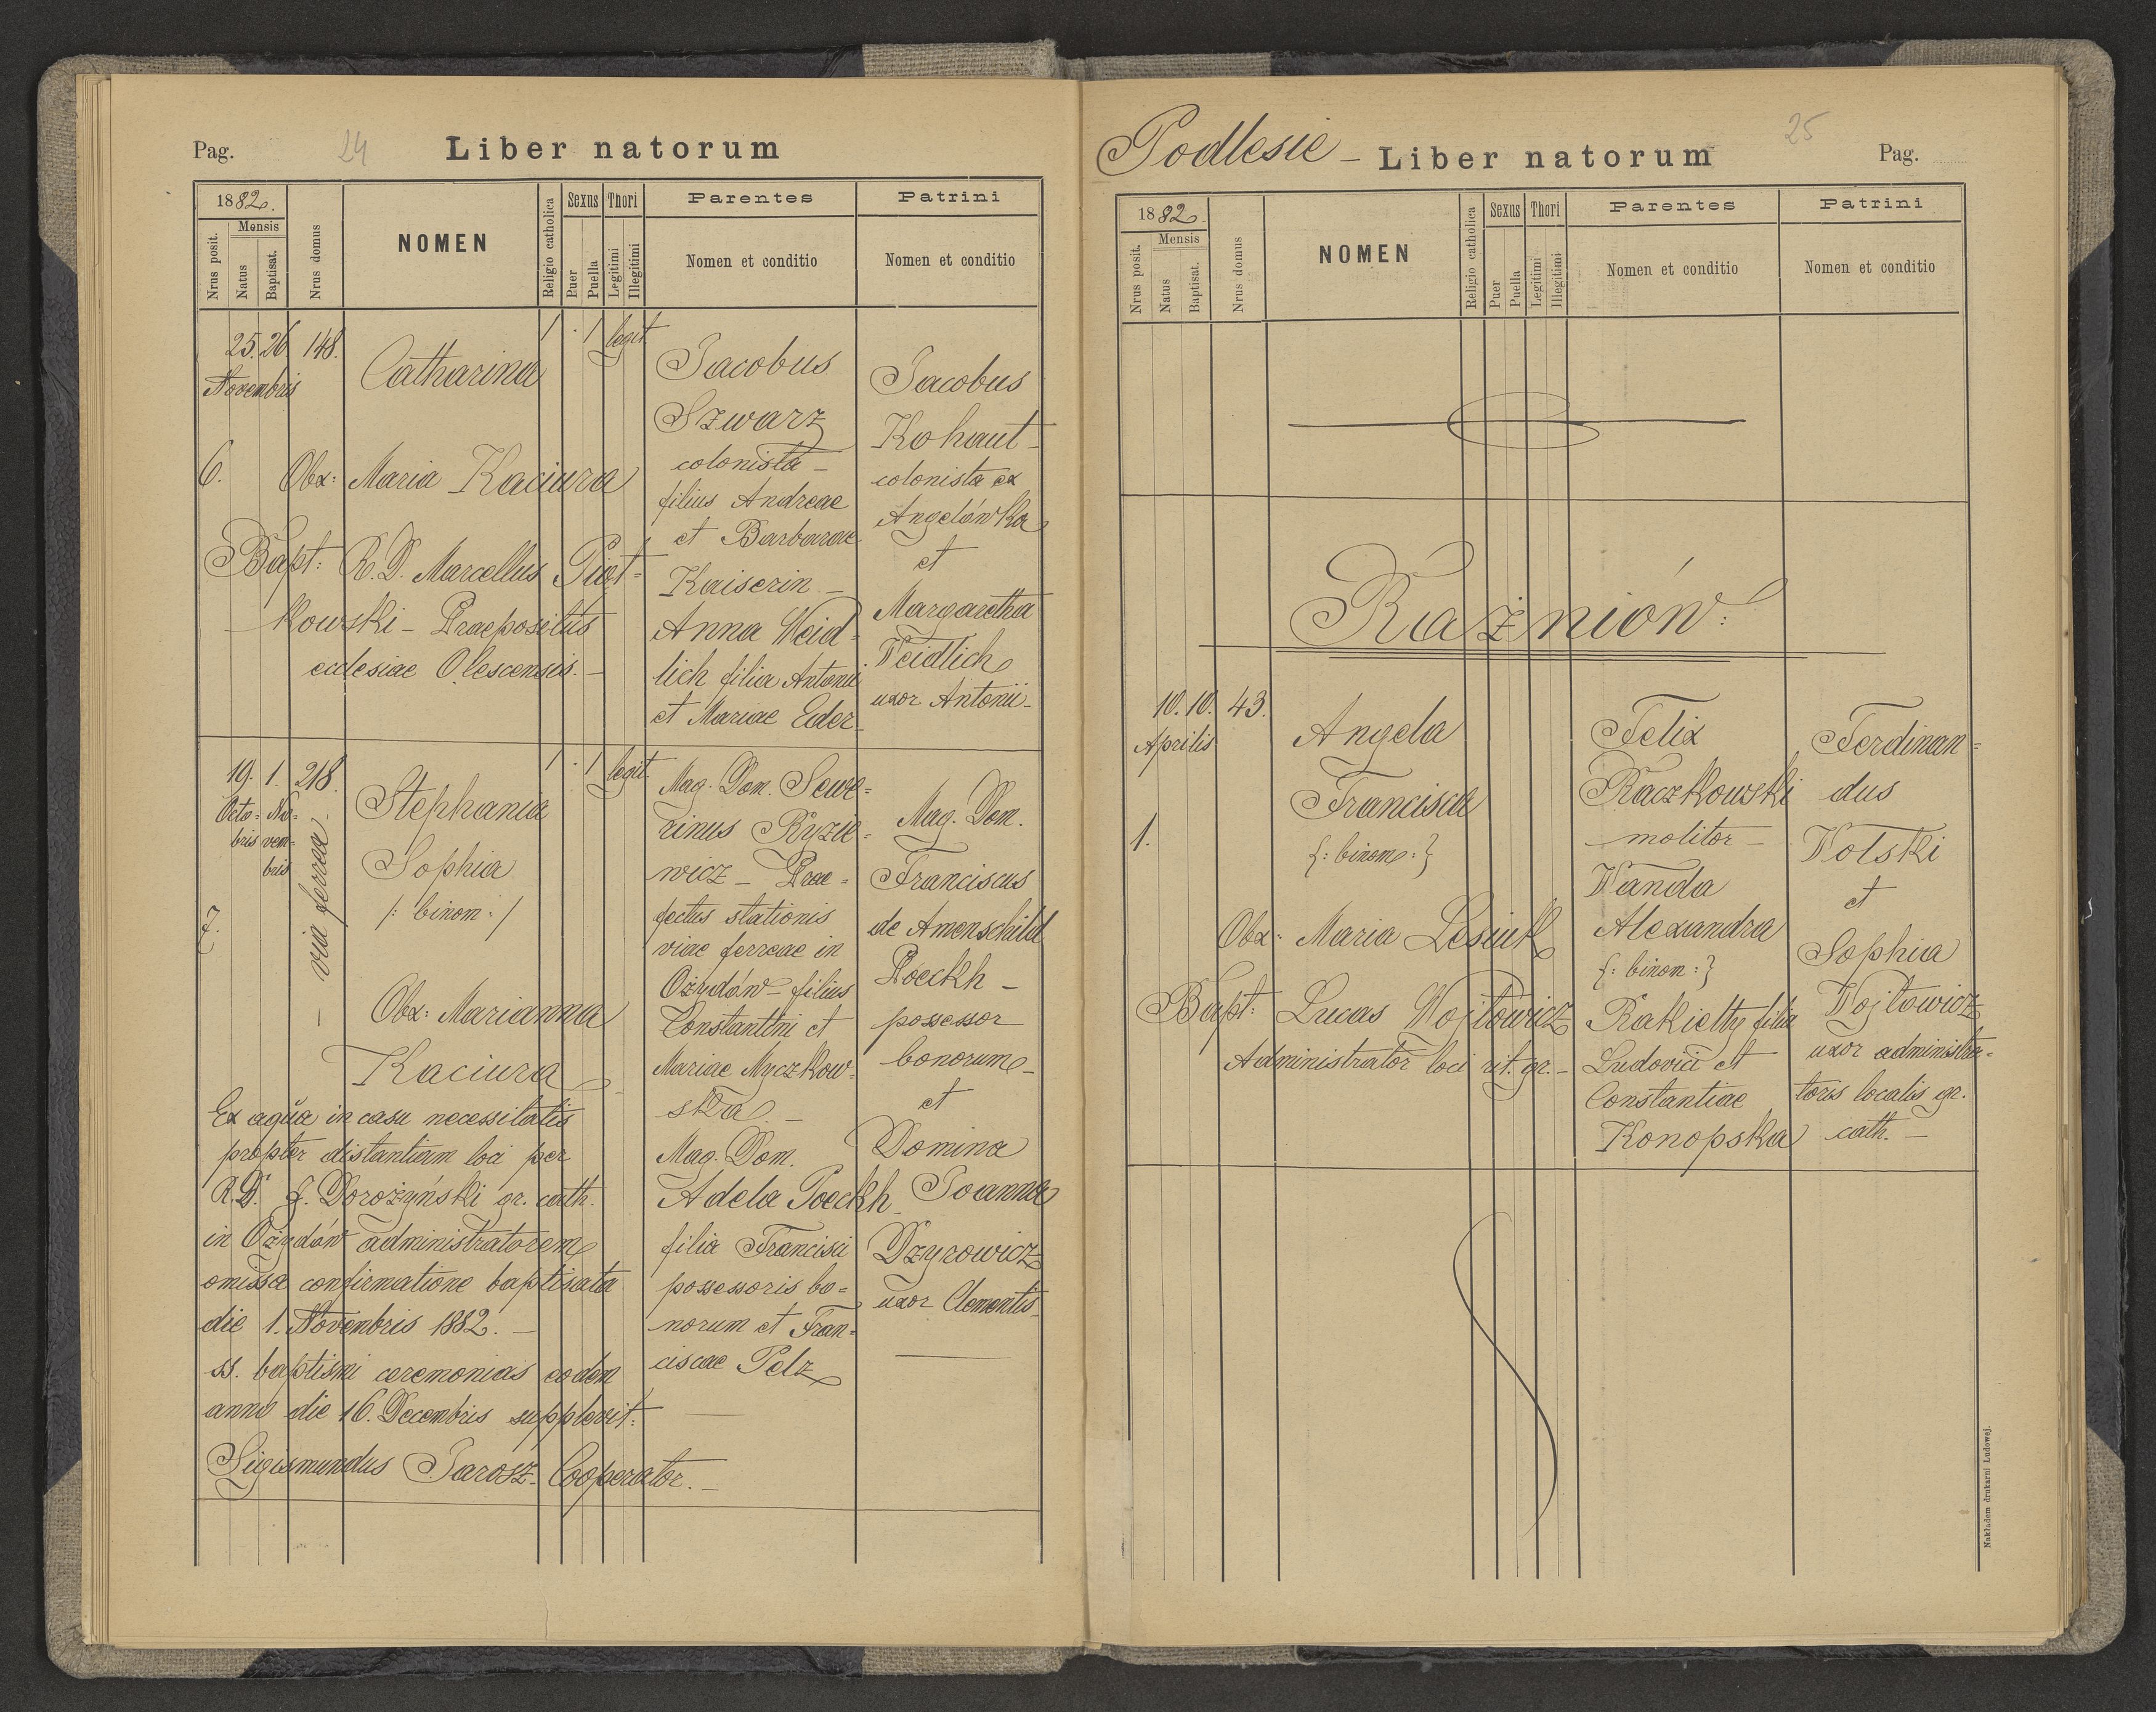 Pag.
24
Liber natorum
1882.
Mensis
Nrus posit.
Natus
Baptisat.
Nrus domus
NOMEN
Religio catholica
Sexus
Puer
Puella
Thori
Legitimi
Illegitimi
Parentes
Nomen et conditio
Patrini
Nomen et conditio
25. 26 148.
Novembris
6.
Catharina
1 . 1 legit
Obx: Maria Kaciura
Bapt: R. D. Marcellus Piot=
kowski - Praepositus
ecclesiae Olescensis. -
Jacobus
Szwarz
colonista -
filius Andreae
et Barbarae
Kaiserin -
Anna Weid=
lich filia Antonii
et Mariae Eder
Jacobus
Kohaut -
colonista ex
Angelówka
et
Margaretha
Weidlich
uxor Antonii -
19. 1. 218.
Octo= No=
bris vem=
bris
7.
- via ferrea -
Stephania
Sophia
/: binom :/
1 . 1 legit
Obx: Marianna
Kaciura
Ex aqŭa in casu necessitatis
propter distantiam loci per
R.D. J. Dorożyński gr. cath.
in Ożydów administratorem
omissa confirmatione baptisata
die 1. Novembris 1882. -
ss. baptismi ceremonias eodem
anno die 16. Decembris supplevit:
Sigismundus Jarosz - Cooperator. -
Mag. Dom. Sewe=
rinus Ryzie=
wicz - Prae=
fectus stationis
viae ferreae in
Ożydów - filius
Constantini et
Mariae Myczkow=
ska -
Mag. Dom.
Adela Poeckh
filia Francisci
possessoris bo=
norum et Fran=
ciscae Pelz
Mag. Dom.
Franciscus
de Amenschild
Poeckh -
possessor
bonorum -
et
Domina
Joanna
Dzyrowicz
uxor Clementis
Podlesie -
Liber natorum
25
Pag.
1882
Mensis
Nrus posit.
Natus
Baptisat.
Nrus domus
NOMEN
Religio catholica
Sexus
Puer
Puella
Thori
Legitimi
Illegitimi
Parentes
Nomen et conditio
Patrini
Nomen et conditio
Rażniów:
10. 10. 43.
Aprilis
1.
Angela
Francisca
{: binom :}
Obx: Maria Lesiuk
Bapt: Lucas Wojtowicz
Administrator loci rit. gr. -
Felix
Raczkowski
molitor -
Wanda
Alexandra
{: binom :}
Rakietty filia
Ludovici et
Constantiae
Konopska
Ferdinan=
dus
Wolski
et
Sophia
Wojtowicz
uxor administra=
toris localis gr.
cath. -
Nakładem drukarni Ludowej.